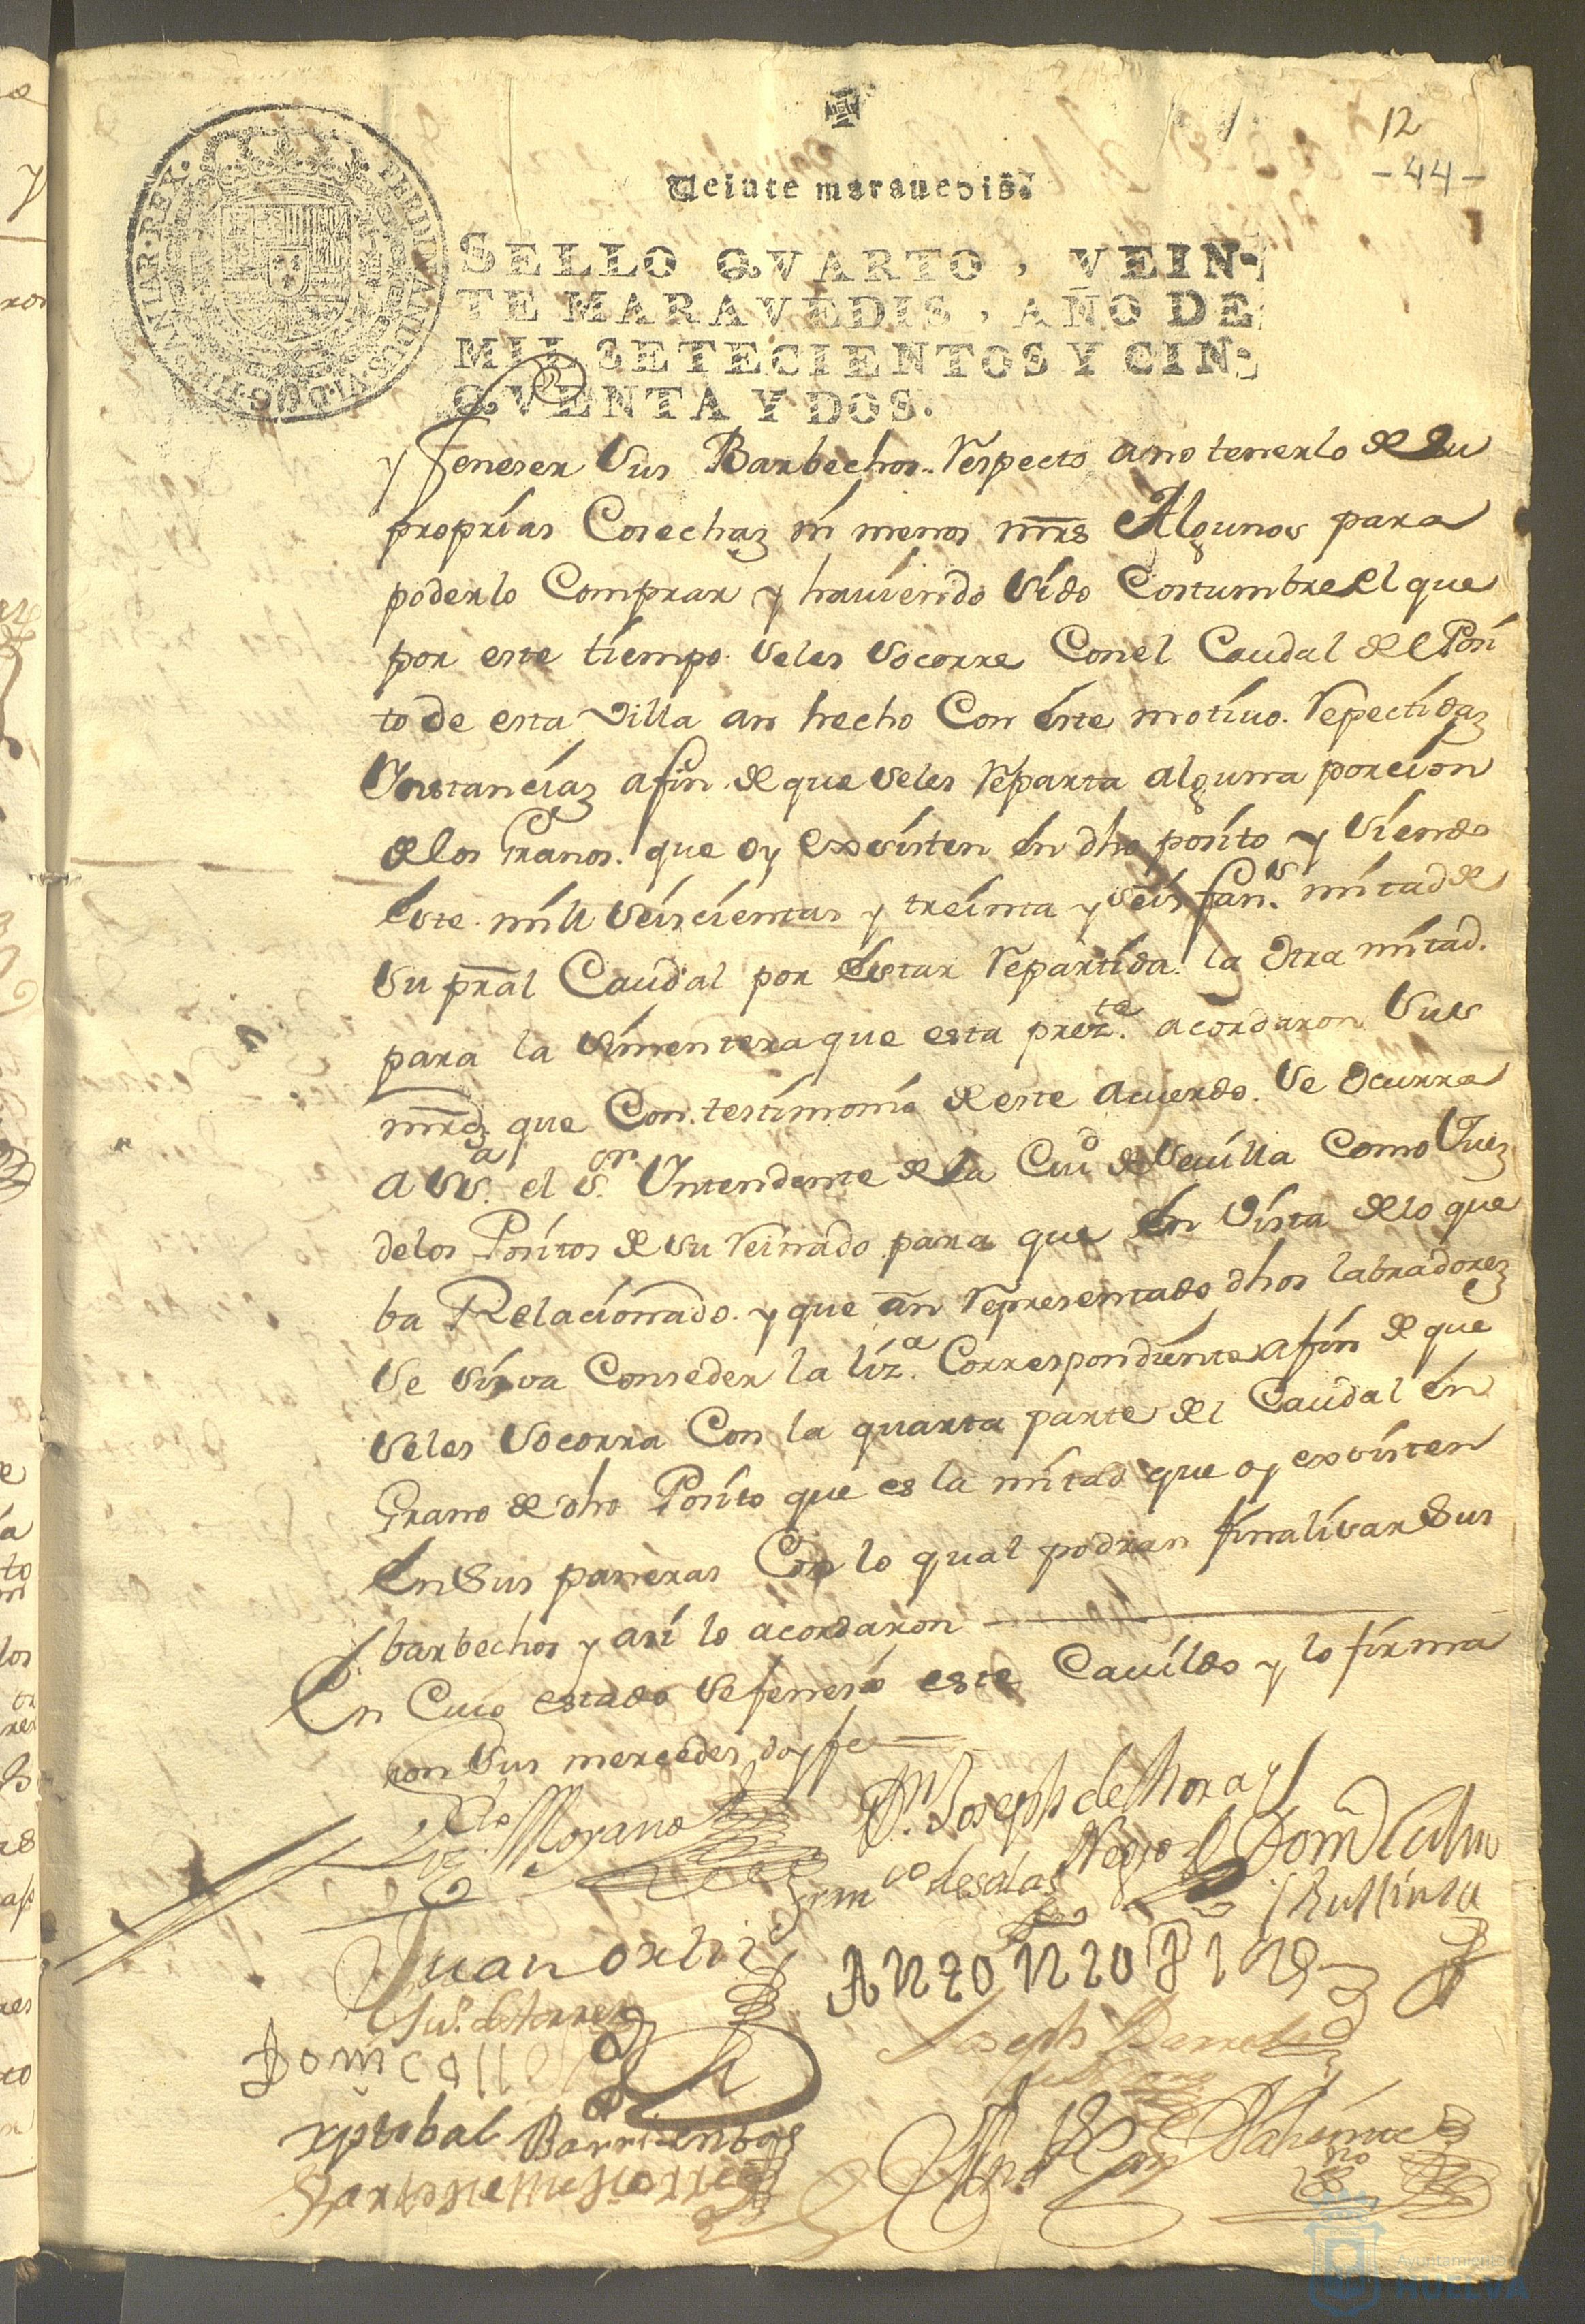 12
- 44 -
Veinte maravedis.
FERDINANDUS.VI.D.G.HISPANIAR.REX.
SELLO QVARTO, VEIN-
TE MARAVEDIS, AÑO DE
MIL SETECIENTOS Y CIN-
QVENTA Y DOS.
y feneser sus Barbechos. respecto ano tenerlo de su
proprias Cosechaz ni menos mrs Algunos para
poderlo Comprar y haviendo sido Costumbre el que
por este tiempo seles socorre Con el Caudal del Posi
to de esta Villa an hecho Con este motivo. repectidaz
Instanciaz afin de que seles reparta alguna porcion
delos Granos. que oy exsisten en dho posito y siendo
este mill seiscientas y treinta y seis fan.s mitad de
su pral Caudal por estar repartida. la otra mitad.
para la simentera que esta prez.te acordaron sus
mrdz que Con testimonio de este acuerdo. se ocurra
a Ss.a el S.or Intendente de la Ciud de Sevilla Como Juez
delos Positos de su reinado para que en vista delo que
ba Relacionado. y que an representado dhos labradorez
se sirva Conseder la liz.a Correspondiente afin de que
seles socorra Con la quarta parte del Caudal en
Grano de dho Posito que es la mitad que oy exsisten
en sus paneras Con lo qual podran finalisar sus
barbechos y asi lo acordaron
En Cuio estado se fenesio este Cavildo y lo firma
ron sus mercedes doy fe
Liz.do Morano
Dn. Joseph de Mora y
Negro
Fran.co de salas
Juan ortiz
Ju.o de torres
Joseph Barreda
xptobal Barrientos
Ayuntamiento de
HUELVA